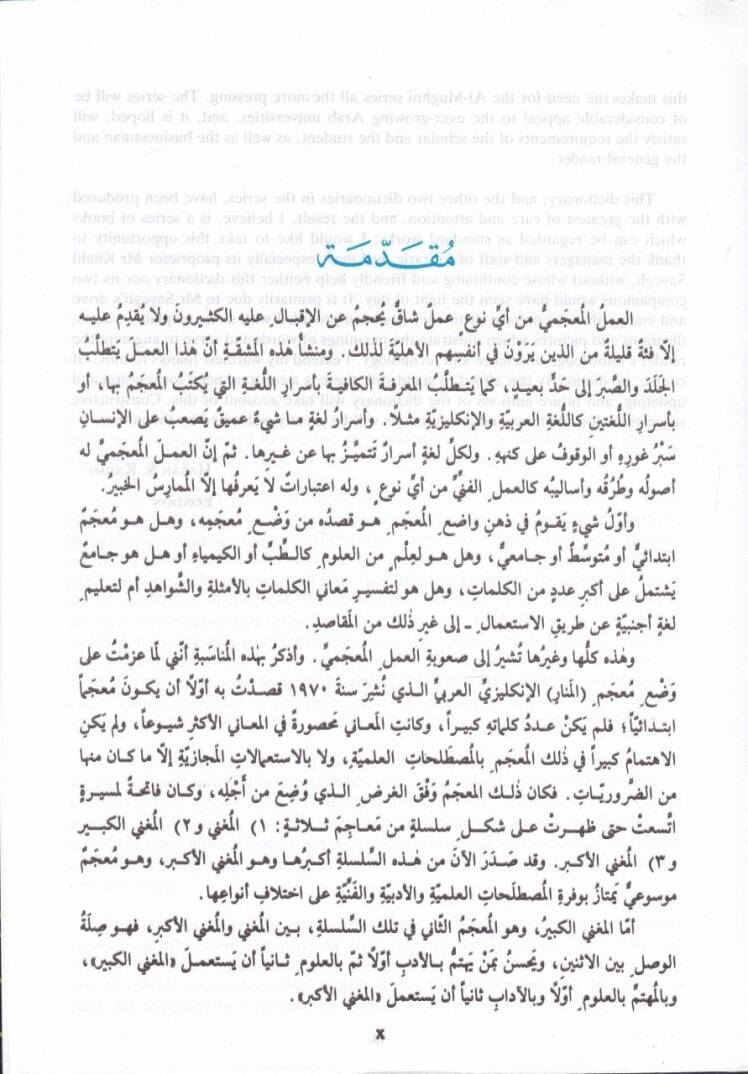 مُقَدّمَة
العمل المُعجَميُّ من أيِّ نوع ٍ عملٌ شاقٌّ يُحجِمُ عن الإقبال ِ عليه الكثيرونَ ولا يُقدِمُ عليه
إلّا فئة قليلةٌ من الذين يَرَوْنَ في أنفسِهم الأهليةَ لذلك. ومنشأ هٰذه المَشقّةِ أنّ هٰذا العمـلَ يَتطلّبُ
الجَلَدَ والصَّبْرَ إلى حَدٍّ بعيدٍ، كما يَتـطلّبُ المعرفةَ الكافيةَ بأسرارِ اللُّغةِ التي يُكتَبُ المُعجَمُ بها، أو
بأسرارِ اللُّغتينِ كاللُّغةِ العربيّةِ والإنكليزيّةِ مثـلاً. وأسرارُ لغةٍ مـا شيءٌ عميقٌ يَصعبُ على الإنسـانِ
سَبْرُ غورِهِ أو الوقوفُ على كنهِهِ. ولكلِّ لغةٍ أسرارٌ تَتميَّـزُ بها عن غيـرِها. ثمّ إنّ العمـلَ المُعجَميَّ له
أصولُه وطُرقُه وأساليبُه كالعمـلِ الفنيِّ من أيِّ نوع ٍ، وله اعتباراتٌ لا يَعرِفُها إلّا المُمارسُ الخبيرُ.
وأوّلُ شيءٍ يَقومُ في ذهنِ واضع ِ المُعجَم ِ هـو قصدُه من وَضْع ِ مُعجَمِه، وهـل هـو مُعجَمٌ
ابتدائيٌّ أو مُتوسِّطٌ أو جـامعيٌّ، وهل هـو لعِلْم ٍ من العلومِ كـالطِّبِّ أو الكيمياءِ أو هـل هو جـامعٌ
يَشتملُ على أكبرِ عددٍ من الكلماتِ، وهل هو لتفسيـرِ مَعاني الكلماتِ بالأمثلةِ والشَّواهدِ أم لتعليم ِ
لغةٍ أجنبيّةٍ عن طريقِ الاستعمال ِ ـ إلى غيرِ ذٰلك من المَقاصدِ.
وهٰذه كلُّها وغيرُها تُشيرُ إلى صعوبةِ العمل ِ المُعجَميِّ. وأذكرُ بهٰذه المُناسَبةِ أنّني لمّا عزمْتُ على
وَضْع ِ مُعجَم ِ (المَنارِ) الإنكليزيِّ العربيِّ الـذي نُشِرَ سنةَ ١٩٧٠ قصـدْتُ به أوّلاً أن يكـونَ مُعجَماً
ابتـدائيّاً؛ فلم يَكنْ عـددُ كلماتِهِ كبيـراً، وكانتِ المَعاني مَحصورةً في المَعاني الأكثرِ شيوعاً، ولم يَكنِ
الاهتمامُ كبيراً في ذٰلك المُعجَم ِ بالمُصطَلحاتِ العلميّةِ، ولا بالاستعمالاتِ المَجازيّةِ إلّا ما كـان منها
من الضَّروريّـاتِ. فكان ذٰلـك المُعجَمُ وَفْقَ الغرض ِ الـذي وُضِعَ من أجْلِه، وكـان فاتحـةً لمسيرةٍ
اتَّسعتْ حتى ظهـرتْ عـلى شكـل ِ سلسلةٍ من مَعـاجِمَ ثـلاثةٍ: ١) المُغني و٢) المُغني الكبيـر
و٣) المُغني الأكبر. وقد صَـدَرَ الآنَ من هٰـذه السِّلسلةِ أكبرُهـا وهـو المُغني الأكبر، وهـو مُعجَمٌ
موسوعيٌّ يَمتازُ بـوفرةِ المُصطلَحاتِ العلميّةِ والأدبيّةِ والفنّيّةِ على اختلافِ أنواعِها.
أمّا المغني الكبيرُ، وهو المُعجَمُ الثّاني في تلك السِّلسلةِ، بـين المُغني والمُغني الأكبرِ، فهـو صِلَةُ
الوصلِ بين الاثنينِ، ويَحسنُ بمَنْ يَهتمُّ بـالأدبِ أوّلاً ثمّ بالعلـوم ِ ثـانياً أن يَستعمـلَ «المُغني الكبير»،
وبالمُهتمِّ بالعلوم ِ أوّلاً وبالآدابِ ثانياً أن يَستعملَ «المُغني الأكبر».
x